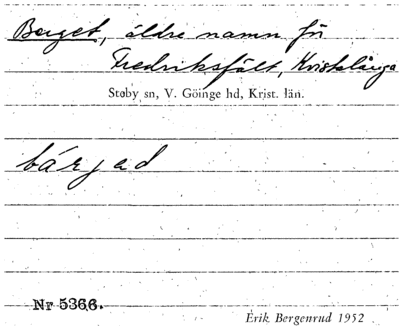 Berget, äldre namn för
Fredriksfält, Kvistalånga
Stoby sn, V. Göinge hd, Krist. län.
bárjəd
Nr 5366.
Erik Bergenrud 1952